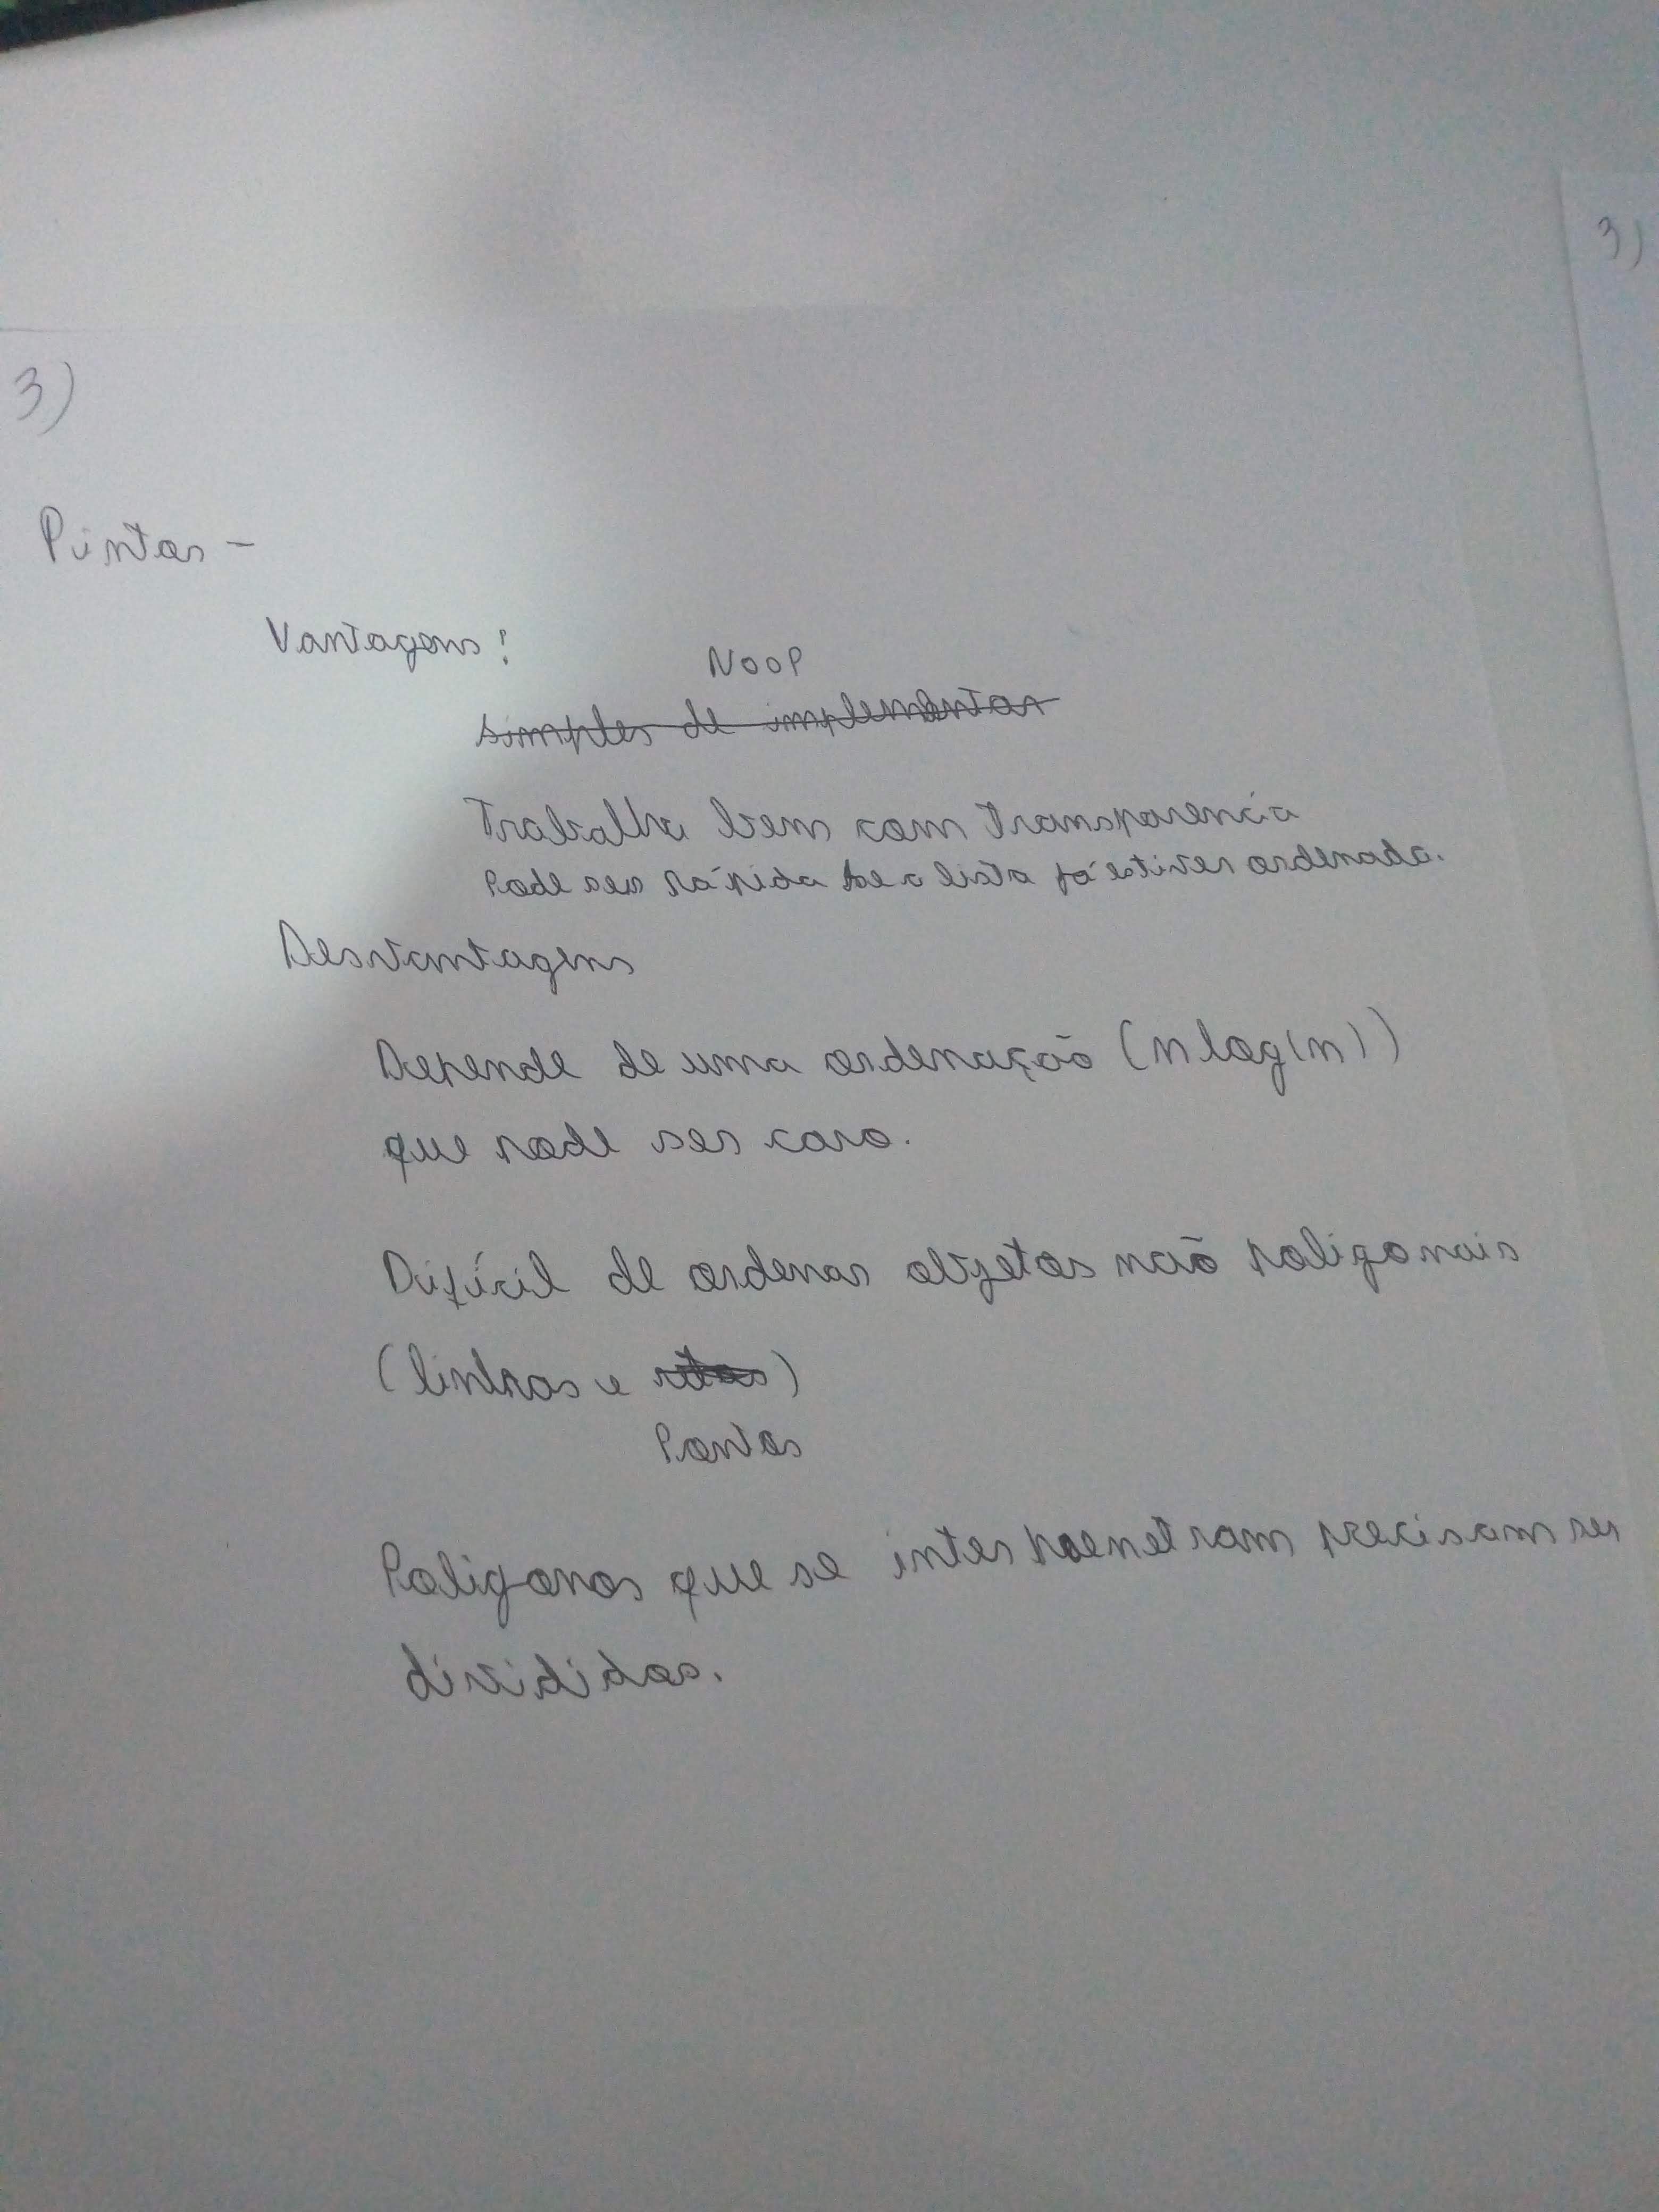 3)
3)
Pintor -
Vantagens:
NooP
simples de implementar
Trabalha bem com transparencia
Pode ser rápida se a lista já estiver ordenada.
Desvantagens
Depende de uma ordenação (n log(n))
que pode ser caro.
Difícil de ordenar objetos não poligonais
(linhas e )
Pontos
Poligonos que se interpenetram precisam ser
divididos.